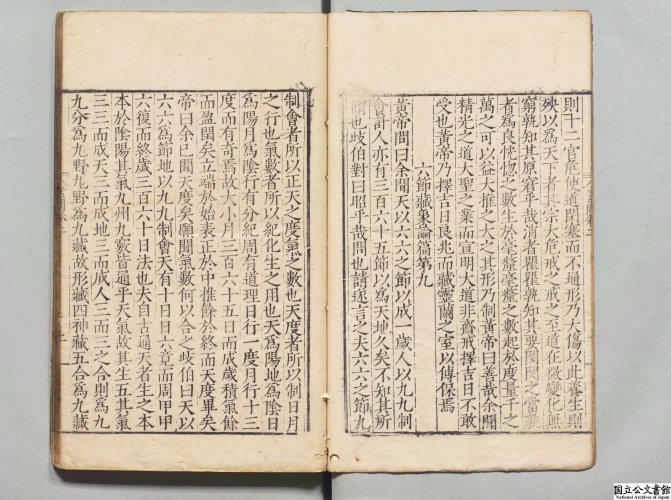 則十二官危使道閉塞而不通形乃大傷以此養生則
殃以為天下者其宗大危戒之戒之至道在微變化無
窮孰知其原窘乎哉消者瞿瞿孰知其要閔閔之當孰
者為良恍惚之數生於毫氂毫氂之數起於度量千之
萬之可以益大推之大之其形乃制黃帝曰善哉余聞
精光之道大聖之業而宣明大道非齋戒擇吉日不敢
受也黃帝乃擇吉日良兆而藏靈蘭之室以傳保焉
六節藏象論篇第九
黃帝問曰余聞天以六六之節以成一歲人以九九制
會計人亦有三百六十五節以為天地久矣不知其所
謂也歧伯對曰昭乎哉問也請遂言之夫六六之節九
制會者所以正天之度氣之數也天度者所以制日月
之行也氣數者所以紀化生之用也天為陽地為陰日
為陽月為陰行有分紀周有道理日行一度月行十三
度而有奇焉故大小月三百六十五日而成歲積氣餘
而盈閏矣立端於始表正於中推餘於終而天度畢矣
帝曰余已聞天度矣願聞氣數何以合之歧伯曰天以
六六為節地以九九制會天有十日日六竟而周甲甲
六復而終歲三百六十日法也夫自古通天者生之本
本於陰陽其氣九州九竅皆通乎天氣故其生五其氣
三三而成天三而成地三而成人三而三之合則為九
九分為九野九野為九藏故形藏四神藏五合為九藏
国立公文書館
National Archives of Japan